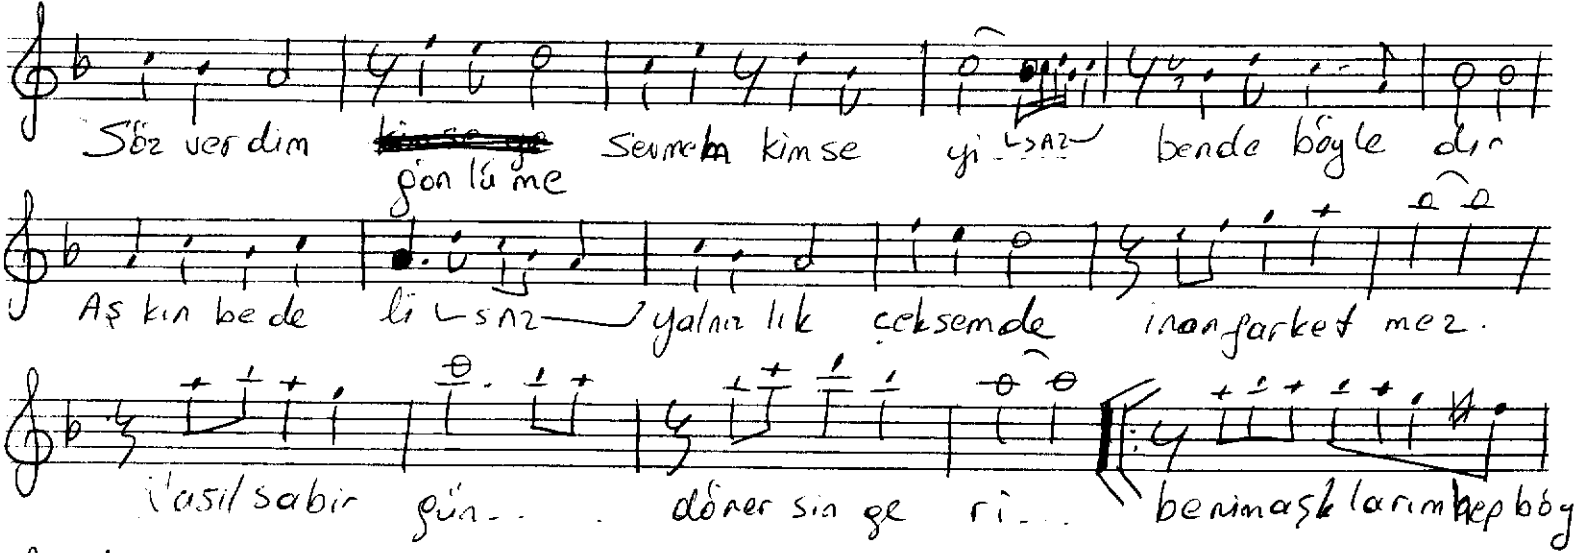 Söz ver dim kimseye Sevmem kimse yi saz bende böyle dir
gön lü me
Aş kın be de li saz yalnız lık çeksemde inan farket mez.
Nasıl sabır gün... döner sin ge ri... benim aşklarım hep böy